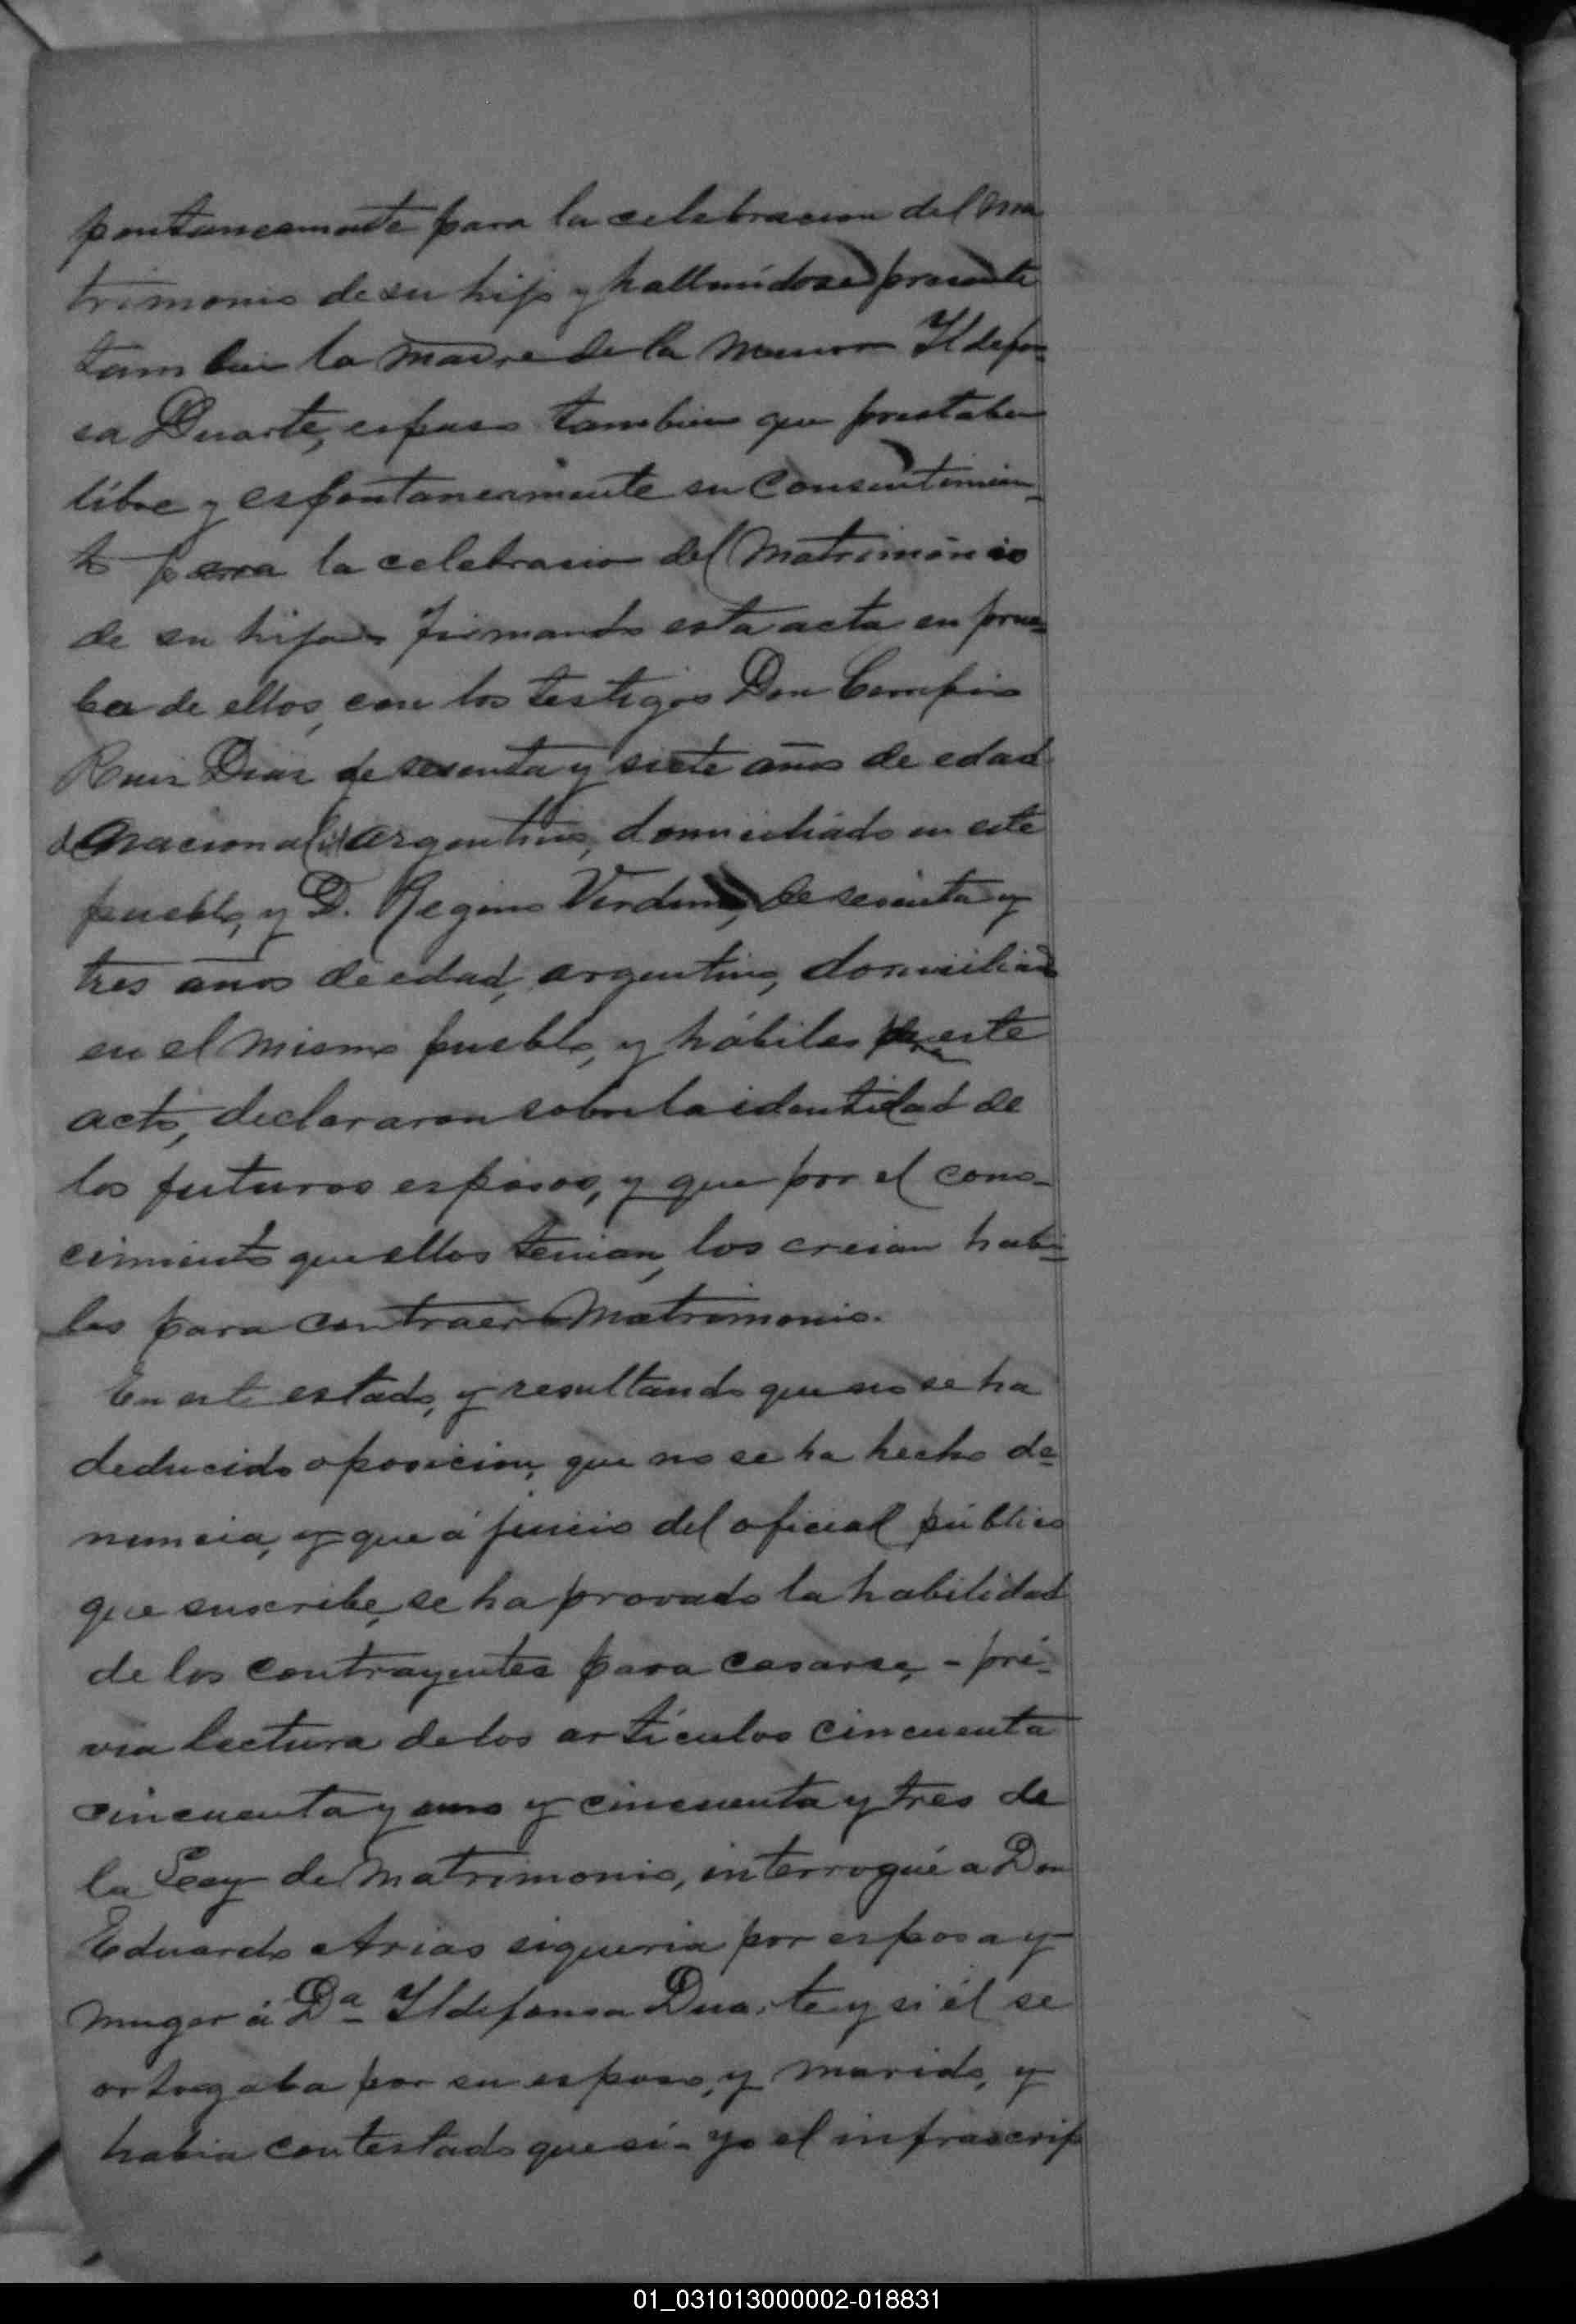 pontaneamente para la celebracion del ma
trimonio de su hijo y hallandose presente
tambien la madre de la menor Ildefon-
sa Duarte, espuso tambien que prestaba
libre y espontaneamente su consentimien-
to para la celebracion del matrimonio
de su hija firmando esta acta en prue-
ba de ellos, con los testigos Don
Ruiz Diaz de sesenta y siete años de edad
de nacionalid argentino, domiciliado en este
pueblo, y D. Regino de sesenta y
tres años de edad, argentino, domiciliado
en el mismo pueblo, y hábiles para este
acto, declararon sobre la identidad de
los futuros esposos, y que por el cono-
cimiento que ellos tenian, los creian habi-
les para contraer matrimonio.
En este estado, y resultando que no se ha
deducido oposicion, que no se ha hecho de-
nuncia, y que á juicio del oficial público
que suscribe, se ha provado la habilidad
de los contrayentes para casarse, - pré-
via lectura de los artículos cincuenta
cincuenta y uno y cincuenta y tres de
la Ley de Matrimonio, interrogué a Don
Eduardo Arias si queria por esposa y
muger á Da Ildefonsa Duarte y si él se
ortogaba por su esposo, y marido, y
habia contestado que sí - yo el infrascrip
01_031013000002-018831